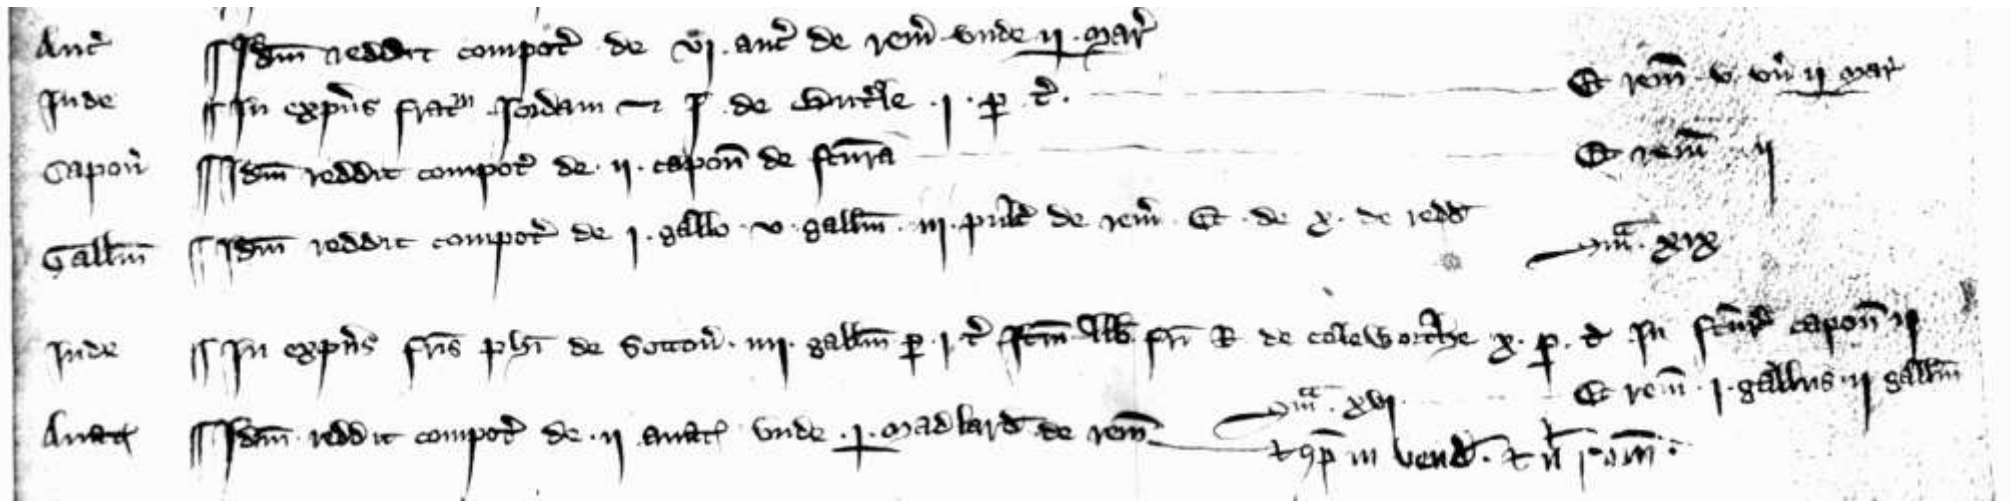 Auc̄ Idm̄ reddit compot̄ de vj. auc̄ de rem̄ unde ij. mar̄
Inde In expn̄s fratrū Jordani ⁊ de . j. p t̄. Et rem̄ v. un̄ ij mar̄
Capon̄ Idm̄ reddit compot̄ de. ij. capon̄ de fct̄ura Et rem̄ ij
Gallin̄ Idm̄ reddit compot̄ de j. gallo v. gallin̄. iij. pulc̄ de rem̄. Et de x. de redd̄
Sm̄ᵃ. xix
Inde In expn̄s fr̄is ph̄i de Sutton̄. iiij. gallin̄ p. j t̄ Itm̄ fr̄i R de coleworthe x. p. t̄ In capon̄ ij
Sm̄ᵃ. xvj. Et rem̄. j. gallus. ij gallin̄
Anat̄ Idm̄ reddit compot̄ de. ij anat̄ unde . j. madlard̄ de rem̄ ⁊ 9p̄ in vend̄. ⁊ n̄